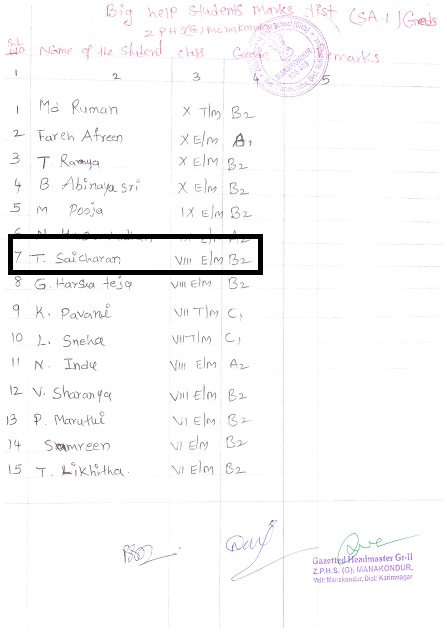 Big help students marks list (SA-1) Grades
Z P H S (G) Manakondur
S.L No Name of the Student class Grade Remarks
1 2 3 4 5
1 Md Ruman X T/m B2
2 Fareh Afreen X E/m A1
3 T. Ramya X E/m B2
4 B. Abinaya sri X E/m B2
5 M Pooja IX E/m B2
6 A2
7 T. Saicharan VIII E/m B2
8 G. Harsha teja VIII E/m B2
9 K. Pavani VII T/m C1
10 L. Sneha VII T/m C1
11 N. Indu VIII E/m A2
12 V. Sharanya VIII E/m B2
13 P. Maruthi VI E/m B2
14 Samreen VI E/m B2
15 T. Likhitha. VI E/m B2
Gazetted Headmaster Gr-II
Z.P.H.S. (G). MANAKONDUR,
Mdl: Manakondur, Dist: Karimnagar